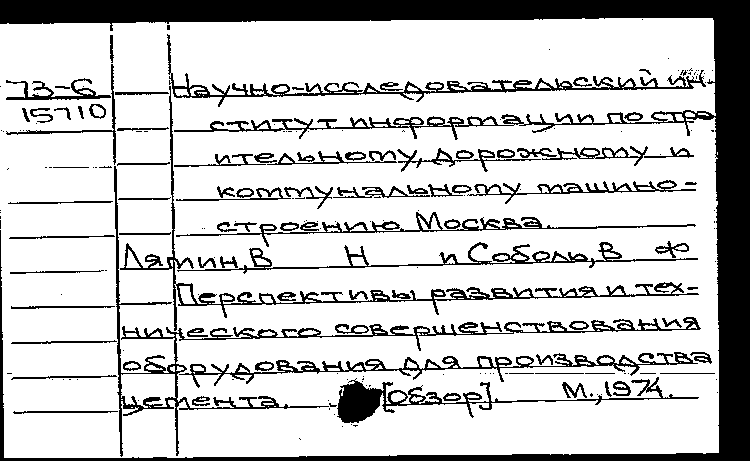 73-6
15710
Научно-исследовательский ин-
ститут информации по стро
ительному, дорожному и
коммунальному машино-
строению. Москва.
Лямин, В Н и Соболь, В Ф
Перспективы развития и тех-
нического совершенствования
оборудования для производства
цемента. [Обзор]. М., 1974.